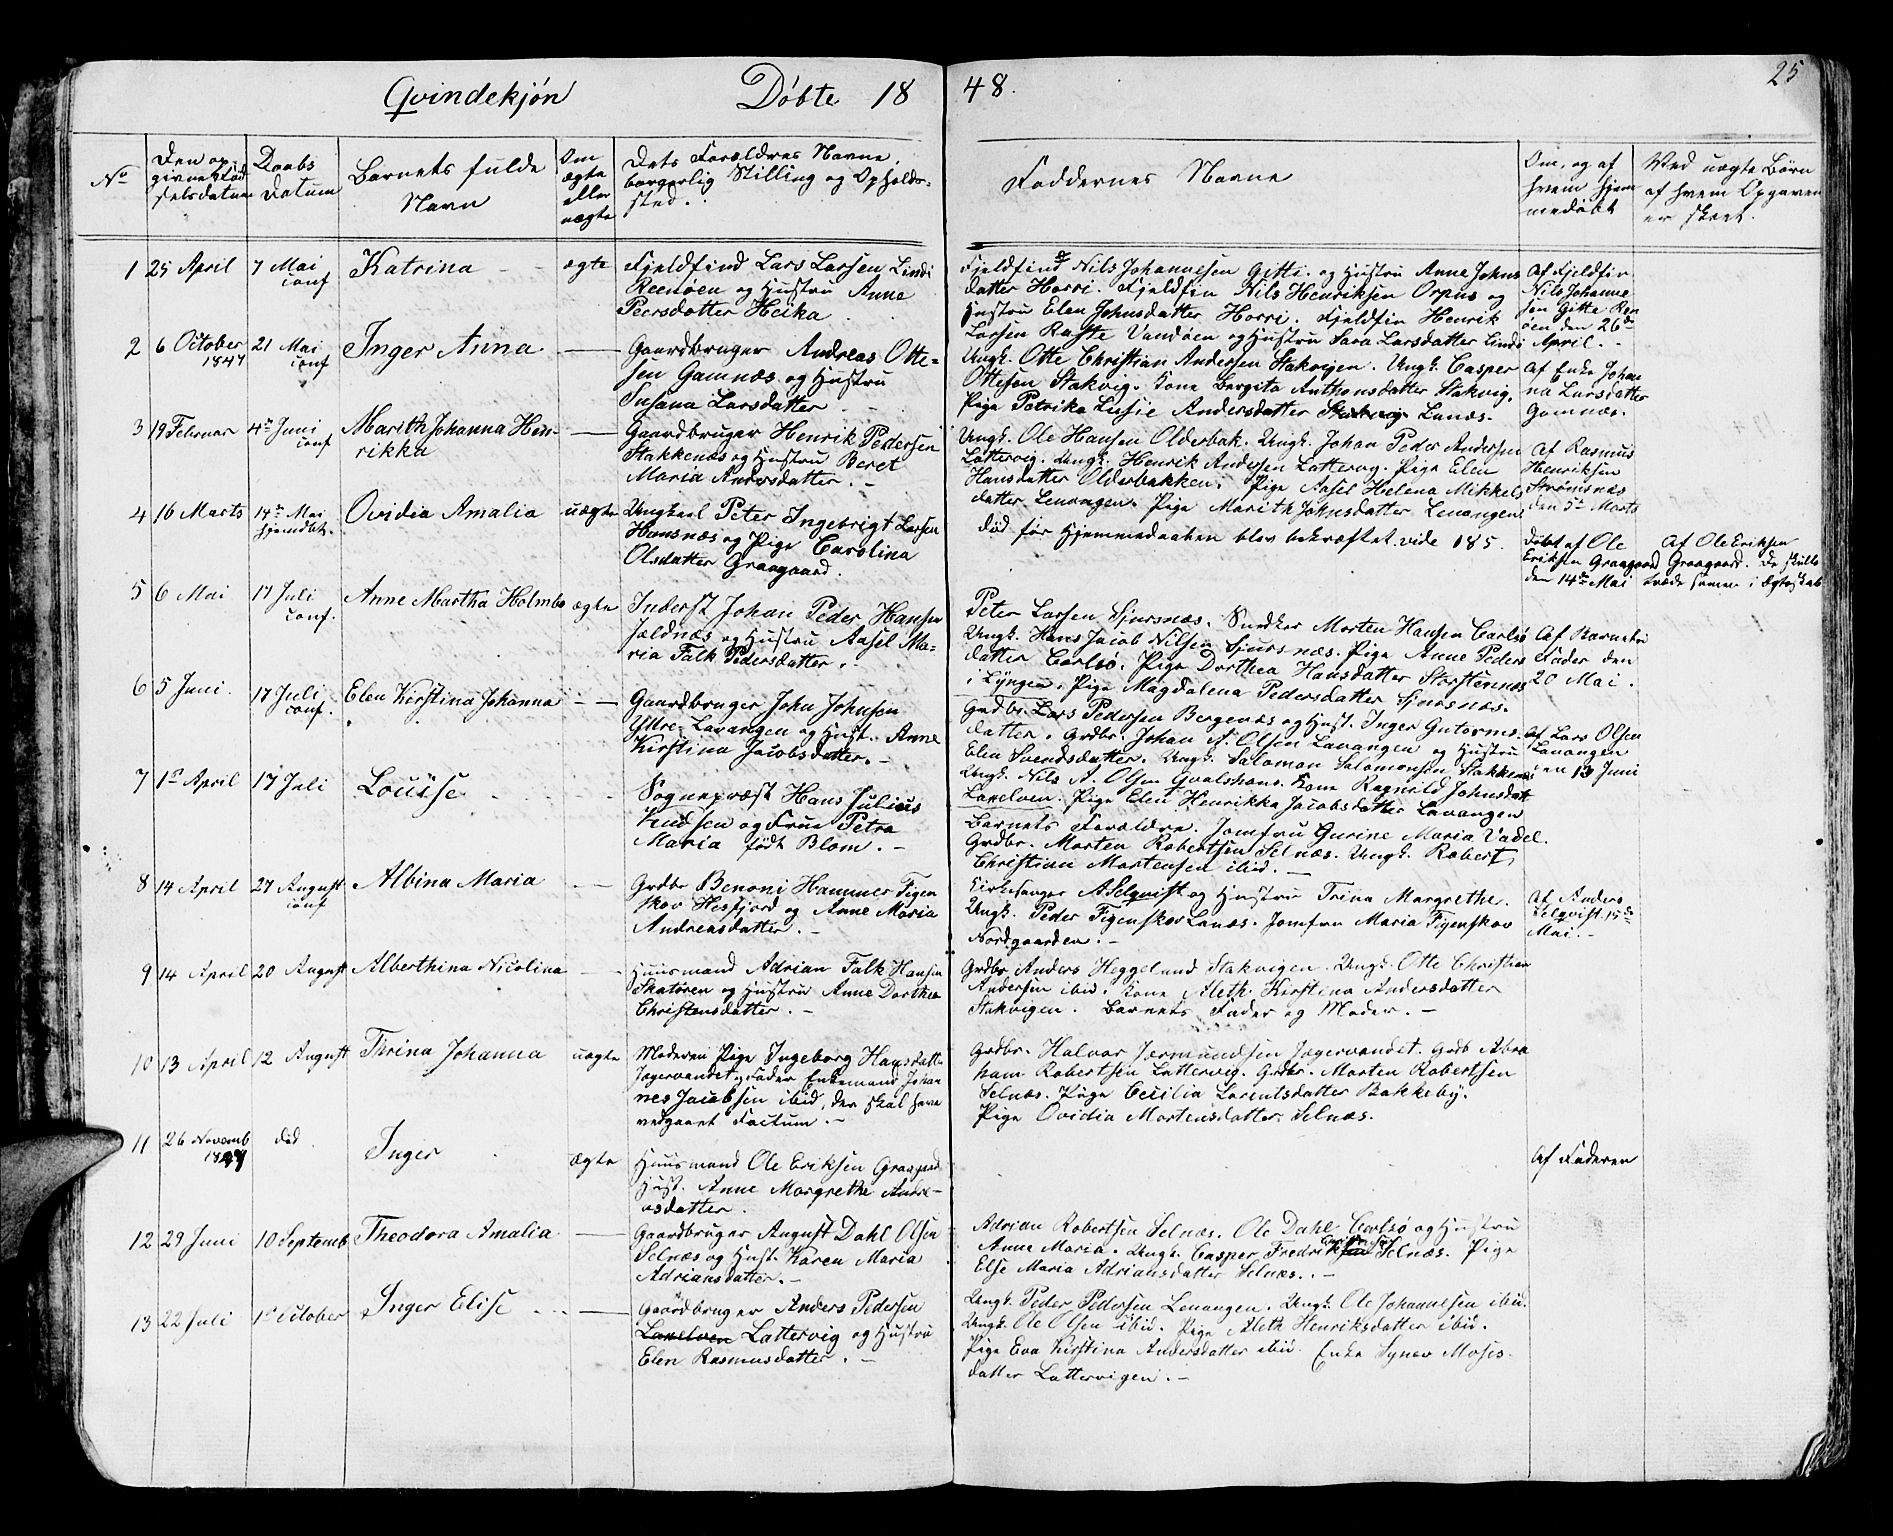 Qvindekjøn Døbte 18 48. 25
No
Den op-
givne Fød
selsdatum
Daabs
Datum
Barnets fulde
Navn
Om
ægte
eller
uægte
Dets Forældres Navne,
borgerlig Stilling og Opholds-
sted.
Faddernes Navne
Om, og af
hvem hjem
medøbt
Ved uægte Børn
af hvem Opgaven
er skeet.
1 25 April 7 Mai
conf
Katrina ægte
Fjeldfind Lars Larsen Lindi
Reenøen og Hustru Anne
Peersdatter Heika
Fjeldfind Nils Johannesen Gitti. og Hustru Anne Johns
datter Horri. Fjeldfin Nils Henriksen Orpus og
Hustru Elen Johnsdatter Horri. Fjeldfin Henrik
Larsen Vandøen og Hustru Sara Larsdatter Lindi
Af Fjeldfin
Nils Johanne
sen Gitte Ren
øen den 26de
April.
2 6 October
1847
21 Mai
conf
Inger Anna
Gaardbruger Andreas Otte-
sen Gamnæs og Hustru
Susana Larsdatter
Ungk. Otte Christian Andersen Stakvigen. Ungk. Casper
Ottesen Stakvig. Kone Bergita Anthonsdatter Stakvig.
Pige Petrika Lusie Andersdatter Lanæs.
Af Enke Johan
na Larsdatter
Gamnæs.
3 19 Februar 4de Juni
conf
Marith Johanna Hen-
rikka
Gaardbruger Henrik Pedersen
Stakkenæs og Hustru Beret
Maria Andersdatter. -
Ungk. Ole Hansen Olderbak. Ungk. Johan Peder Andersen
Lattervig. Ungk. Henrik Andersen Lattervg. Pige Elen
Hansdatter Olderbakken. Pige Aasel Helena Mikkels
datter Lenangen. Pige Marith Johnsdatter Lenangen
Af Rasmus
Henriksen
Strømsnæs
den 5te Marts
4 16 Marts 14de Mai
hjemdbt.
Ovidia Amalia uægte
Ungkarl Peter Ingebrigt Larsen
Hansnæs og Pige Carolina
Olsdatter Graagaard.
død før Hjemmedaaben blev bekræftet vide 185.
døbt af Ole
Eriksen Graagaard
den 14de Mai
Af Ole Eriksen
Graagaard. De skulle
træde samme i Ægteskab
5 6 Mai 17 Juli
conf.
Anne Martha Holmbo ægte
Inderst Johan Peder Hansen
Jældnæs og Hustru Aasel Ma-
ria Falk Pedersdatter.
Peter Larsen Sjursnæs. Snedker Morten Hansen Carlsø
Ungk. Hans Jacob Nilsen Sjursnæs. Pige Anne Peders
datter Carlsø. Pige Dorthea Hansdatter Storstennæs
i Lyngen. Pige Magdalena Pedersdatter Sjursnæs.
Af Barnets
Fader den
20 Mai.
6 5 Juni. 17 Juli
conf.
Elen Kirstina Johanna
Gaardbruger John Johnsen
Ydre Lavangen og Hust. Anne
Kirstina Jacobsdatter. -
Grdbr. Lars Pedersen Bergenæs og Hust. Inger Gutorms-
datter. Grdbr. Johan A. Olsen Lavangen og Hustru
Elen Svendsdatter. Ungk. Salomon Salomonsen Stakkenæs
Ungk. Nils A. Olsen Hvalshans. Kone Ragnild Johnsdatt
Laxelven. Pige Elen Henrikka Jacobsdatter Lavangen
Af Lars Olsen
Lavangen
den 13 Juni
7 1ste April 17 Juli Louisse
Sognepræst Hans Julius
Knudsen og Frue Petra
Maria født Blom. -
Barnets Forældre. Jomfru Gurine Maria Vadel.
Grdbr. Morten Robertsen Selnæs. Ungk. Robert
Christian Mortensen ibid. -
8 14 April 27 August
conf
Albina Maria
Grdbr Benoni Hammer Figen
skov Hesfjord og Anne Maria
Andreasdatter. -
Kirkesanger A Selqvist og Hustru Trina Margrethe.
Ungk. Peder Figenskov Lanæs. Jomfru Maria Figenskov
Nordgaarden. -
Af Anders
Selqvist 15de
Mai. -
9 14 April 20 August Alberthina Nicolina
Huusmand Adrian Falk Hansen
Skatøren og Hustru Anne Dorthea
Christensdatter. -
Grdbr Anders Heggelund Stakvigen. Ungk. Otte Christian
Andersen ibid. Kone Aleth Kirstina Andersdatter
Stakvigen. Barnets Fader og Moder. -
10 13 April 12 August Thrina Johanna uægte
Moderen Pige Ingeborg Hansdatt
Jægervandet, Fader Enkemand Johan
nes Jacobsen ibid, der skal have
vedgaaet Factum. -
Grdbr. Halvar Jermundsen Jægervandet. Grdb Abra
ham Robertsen Lattervig. Grdbr. Morten Robertsen
Selnæs. Pige Cecilia Larentsdatter Bakkeby.
Pige Ovidia Mortensdatter Selnæs.
11 26 Novemb
1847
død
Inger ægte
Huusmand Ole Eriksen Graagaard
Hust. Anne Margrethe Andre-
asdatter.
Af Faderen
12 29 Juni 10 Septemb Theodora Amalia
Gaardbruger August Dahl Olsen
Selnæs og Hust. Karen Maria
Adriansdatter. -
Adrian Robertsen Selnæs. Ole Dahl Carlsø og Hustru
Anne Maria. Ungk. Casper Fredrik Selnæs. Pige
Else Maria Adriansdatter Selnæs. -
13 22 Juli 1st October Inger Elise
Gaardbruger Anders Pedersen
Laxelven Lattervig og Hustru
Elen Rasmusdatter. -
Ungk. Peder Pedersen Lenangen. Ungk. Ole Johannesen ibid.
Ungk. Ole Olsen ibid. Pige Aleth Henriksdatter ibid.
Pige Eva Kirstina Andersdatter ibid. Enke Synev Moses-
datter Lattervigen. -